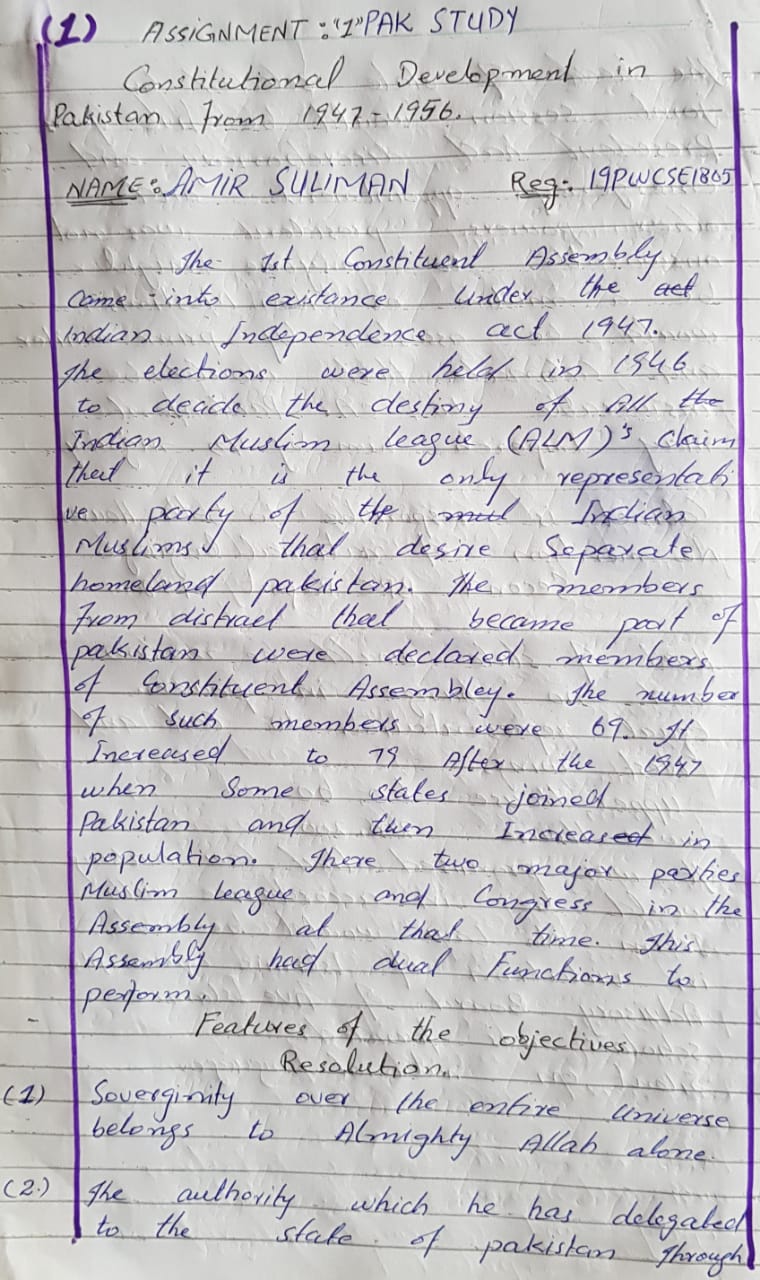 (1) ASSIGNMENT :"1" PAK STUDY
Constitutional Development in
Pakistan from 1947-1956.
NAME: AMIR SULIMAN Reg: 19PWCSE1805
The 1st Constituent Assembly
Came into existance under the act
Indian Independence act 1947.
The elections were held in 1946
to decide the destiny of All the
Indian Muslim league (ALM)'s Claim
that it is the only representati
ve party of the mul Indian
Muslims that desire Separate
homeland pakistan. The members
from distract that became part of
pakistan were declared members
of Constituent Assembley. The number
of such members were 69. It
Increased to 79 After the 1947
when Some states joined
Pakistan and then Increased in
population. There two major parties
Muslim league and Congress in the
Assembly at that time. This
Assembly had dual Functions to
perform.
Features of the objectives
Resolution.
(1) Soverginity over the entire universe
belongs to Almighty Allah alone.
(2.) The authority which he has delegated
to the state of pakistan through